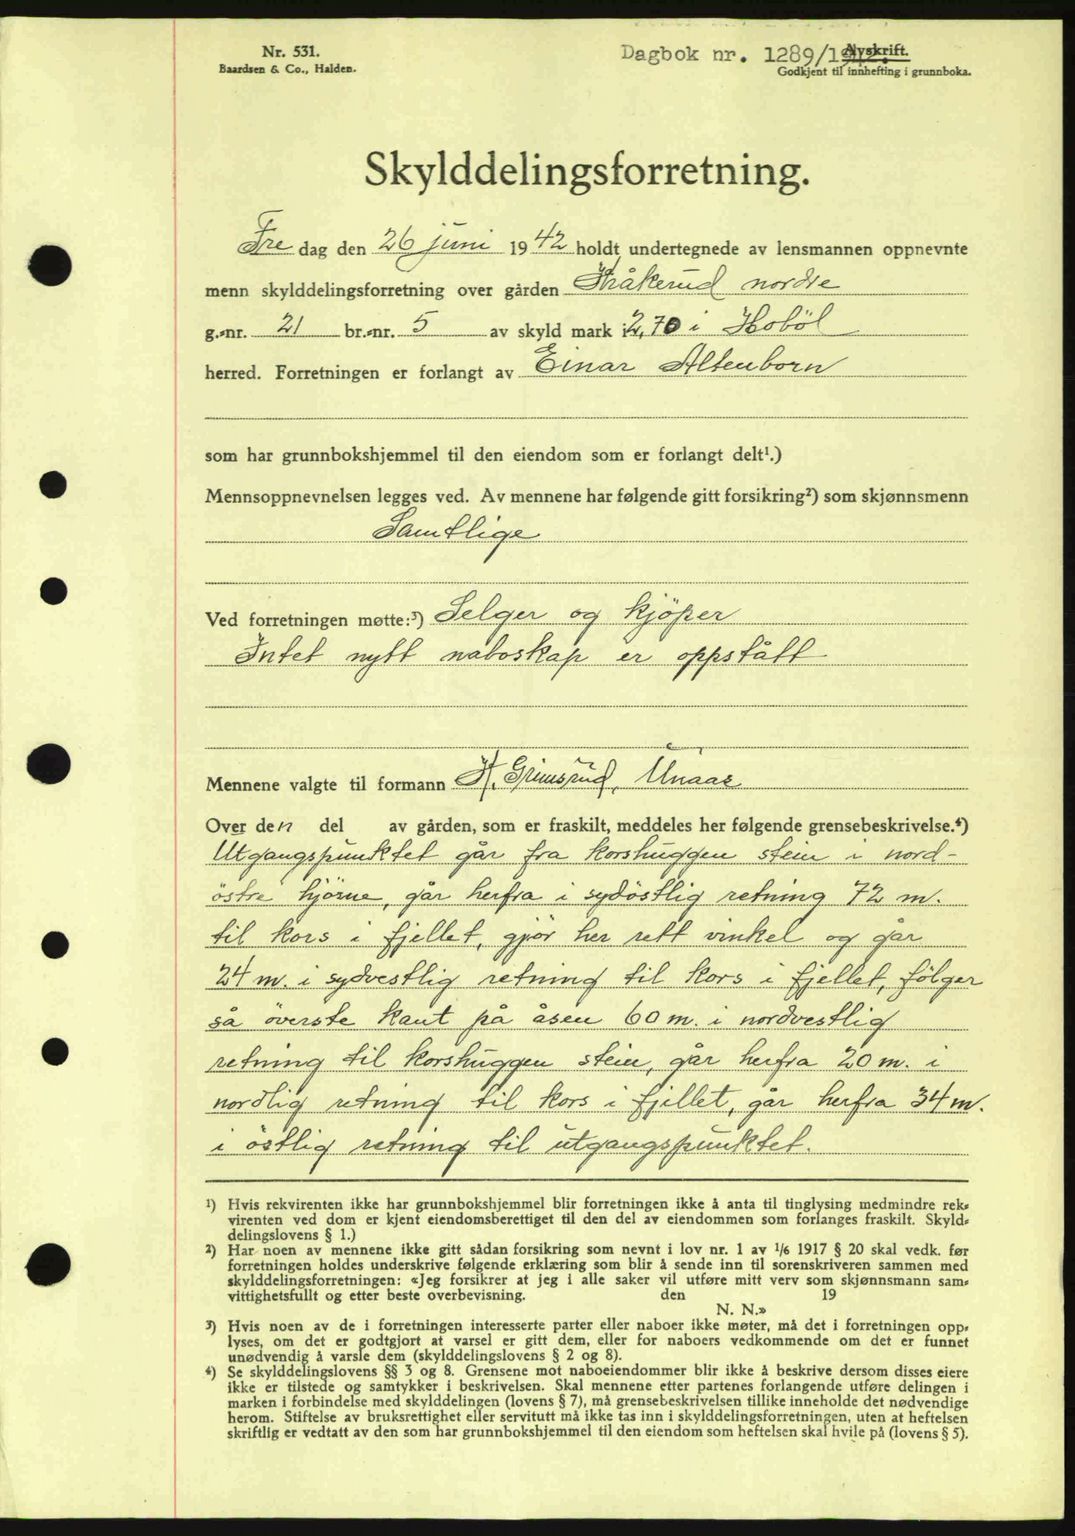 Nr. 531.
Baardsen & Co., Halden.
Dagbok nr. 1289/1942.
Avskrift.
Godkjent til innhefting i grunnboka.
Skylddelingsforretning.
Fre dag den 26 juni 1942 holdt undertegnede av lensmannen oppnevnte
menn skylddelingsforretning over gården Kråkerud nordre
g.-nr. 21 br.-nr. 5 av skyld mark 2,70 i Hobøl
herred. Forretningen er forlangt av Einar Altenborn
som har grunnbokshjemmel til den eiendom som er forlangt delt¹.)
Mennsoppnevnelsen legges ved. Av mennene har følgende gitt forsikring²) som skjønnsmenn
Samtlige
Ved forretningen møtte:³) Selger og kjöper
Intet nytt naboskap er oppstått
Mennene valgte til formann H. Grimsrud, Unaas
Over den del av gården, som er fraskilt, meddeles her følgende grensebeskrivelse.⁴)
Utgangspunktet går fra korshuggen stein i nord-
östre hjörne, går herfra i sydöstlig retning 72 m.
til kors i fjellet, gjör her rett vinkel og går
24 m. i sydvestlig retning til kors i fjellet, fölger
så överste kant på åsen 60 m. i nordvestlig
retning til korshuggen stein, går herfra 20 m. i
nordlig retning til kors i fjellet, går herfra 34 m.
i östlig retning til utgangspunktet.
¹) Hvis rekvirenten ikke har grunnbokshjemmel blir forretningen ikke å anta til tinglysing medmindre rek-
virenten ved dom er kjent eiendomsberettiget til den del av eiendommen som forlanges fraskilt. Skyld-
delingslovens § 1.)
²) Har noen av mennene ikke gitt sådan forsikring som nevnt i lov nr. 1 av 1/6 1917 § 20 skal vedk. før
forretningen holdes underskrive følgende erklæring som blir å sende inn til sorenskriveren sammen med
skylddelingsforretningen: «Jeg forsikrer at jeg i alle saker vil utføre mitt verv som skjønnsmann sam-
vittighetsfullt og etter beste overbevisning. den 19
N. N.»
³) Hvis noen av de i forretningen interesserte parter eller naboer ikke møter, må det i forretningen opp-
lyses, om det er godtgjort at varsel er gitt dem, eller for naboers vedkommende om det er funnet
unødvendig å varsle dem (skylddelingslovens § 2 og 8).
⁴) Se skylddelingslovens §§ 3 og 8. Grensene mot naboeiendommer blir ikke å beskrive dersom disses eiere
ikke er tilstede og samtykker i beskrivelsen. Skal mennene etter partenes forlangende utføre delingen i
marken i forbindelse med skylddelingen (lovens § 7), må grensebeskrivelsen tillike inneholde det nødvendige
herom. Stiftelse av bruksrettighet eller servitutt må ikke tas inn i skylddelingsforretningen, uten at heftelsen
skriftlig er vedtatt av den som har grunnbokshjemmel til den eiendom som heftelsen skal hvile på (lovens § 5).